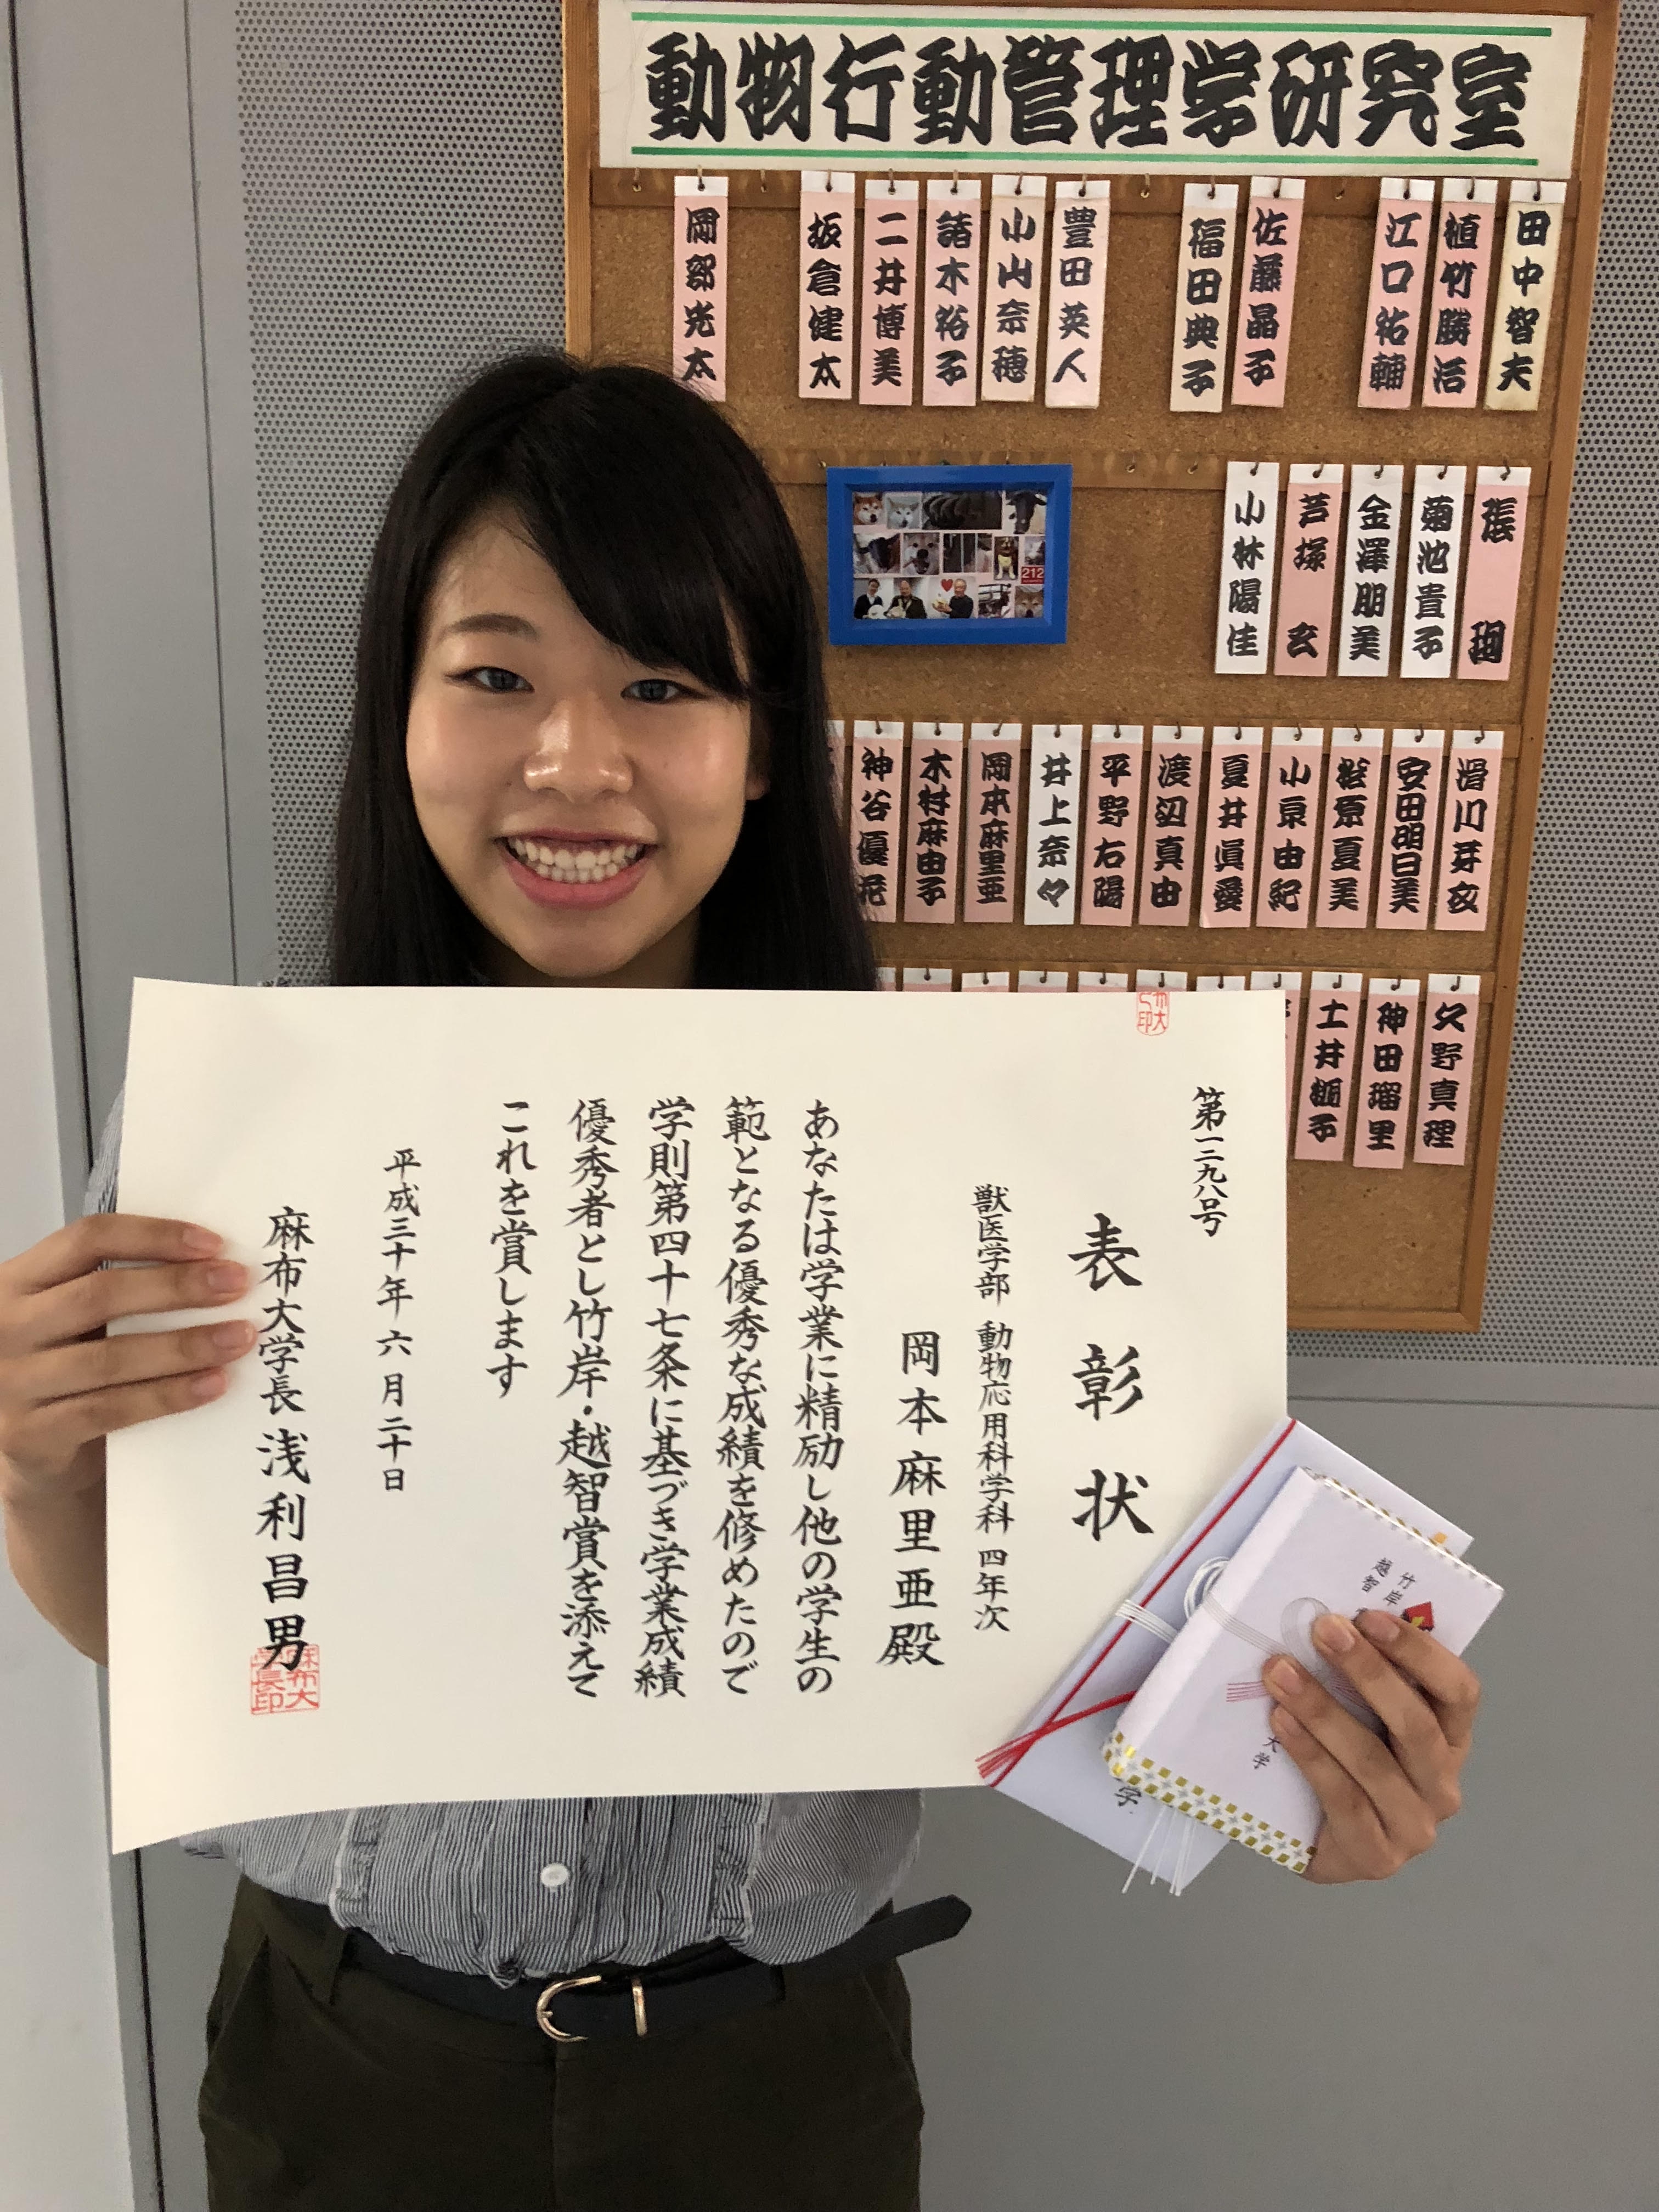 動物行動管理学研究室
田中智夫
植竹勝治
江口祐輔
佐藤晶子
福田典子
豊田英人
小山奈穂
諸木裕子
二井博美
坂倉健太
岡部光太
張 珣
菊池貴子
金澤朋美
芦塚 玄
小林陽佳
212
滑川芽衣
安田明日美
萩原夏美
小泉由紀
夏井眞愛
渡辺真由
平野右陽
井上奈々
岡本麻里亜
木村麻由子
神谷優花
久野真理
神田瑠里
土井梔子
第一二九八号
表彰状
獣医学部 動物応用科学科 四年次
岡本麻里亜殿
あなたは学業に精励し他の学生の
範となる優秀な成績を修めたので
学則第四十七条に基づき学業成績
優秀者とし竹岸・越智賞を添えて
これを賞します
平成三十年六月二十日
麻布大学長 浅利昌男
麻布大
学長印
竹岸
越智
大学